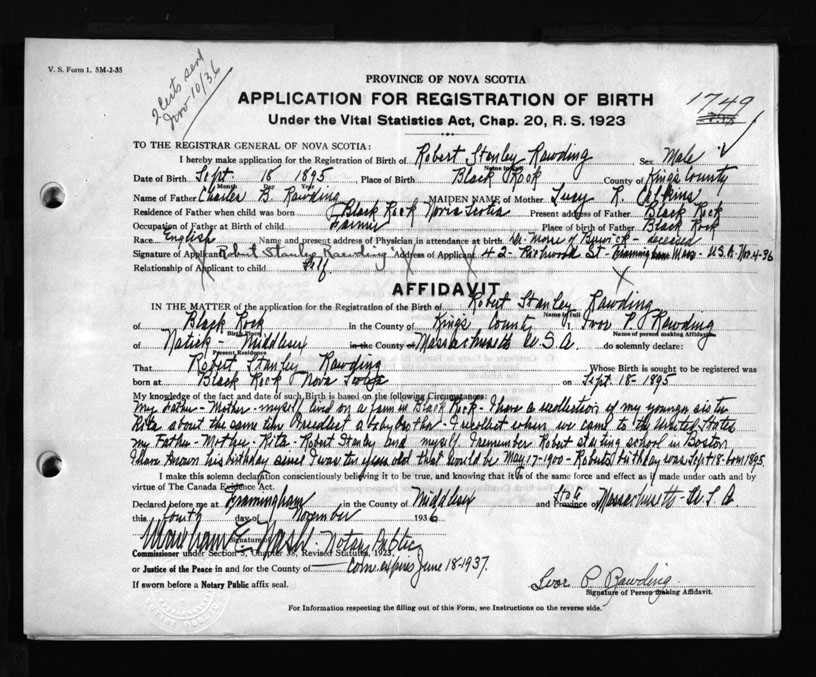 V. S. Form 1. 5M-2-35
2 Certs send
Nov 10/36
PROVINCE OF NOVA SCOTIA
APPLICATION FOR REGISTRATION OF BIRTH
1749
Under the Vital Statistics Act, Chap. 20, R. S. 1923
TO THE REGISTRAR GENERAL OF NOVA SCOTIA:
I hereby make application for the Registration of Birth of Robert Stanley Rawding Sex Male
Name in Full
Date of Birth Sept 18 1895 Place of Birth Black Rock County of Kings County
Month Day Year
Name of Father Charles B. Rawding MAIDEN NAME of Mother Lucy R.
Residence of Father when child was born Black Rock Nova Scotia Present address of Father Black Rock
Occupation of Father at Birth of child Farmer Place of Birth of Father Black Rock
Race English Name and present address of Physician in attendance at birth Dr. Morse of Berwick - deceased
Signature of Applicant Robert Stanley Rawding Address of Applicant 42 - St - Framingham Mass - U.S.A. Nov. 4-36
Relationship of Applicant to child Self.
AFFIDAVIT
IN THE MATTER of the application for the Registration of the Birth of Robert Stanley Rawding
Name in Full
of Black Rock in the County of Kings County I, Ivor P. Rawding
Birth Place Name of person making Affidavit
of Natick - Middlesex in the County of Massachusetts U.S.A. do solemnly declare:
Present Residence
That Robert Stanley Rawding Whose Birth is sought to be registered was
born at Black Rock Nova Scotia on Sept. 18 - 1895
My knowledge of the fact and date of such Birth is based on the following Circumstances:
My Father - Mother - myself lived on a farm in Black Rock - I have a recollection of my younger sister
Rita about the same time I recollect a baby brother - I recollect when we came to the United States
my Father - Mother - Rita - Robert Stanley and myself. I remember Robert starting school in Boston
I have known his birthday since I was ten years old that would be May 17-1900 - Roberts birthday was Sept 18 - born 1895.
I make this solemn declaration conscientiously believing it to be true, and knowing that it is of the same force and effect as if made under oath and by
virtue of The Canada Evidence Act.
Declared before me at Framingham in the County of Middlesex State and Province Massachusetts - U.S.A.
this fourth day of November 1936
Nash. Notary Public
Signature
Commissioner under Section 5, Chapter 38, Revised Statutes, 1923,
or Justice of the Peace in and for the County of Com. expires June 18-1937.
If sworn before a Notary Public affix seal.
Ivor P. Rawding
Signature of Person making Affidavit.
For Information respecting the filling out of this Form, see Instructions on the reverse side.